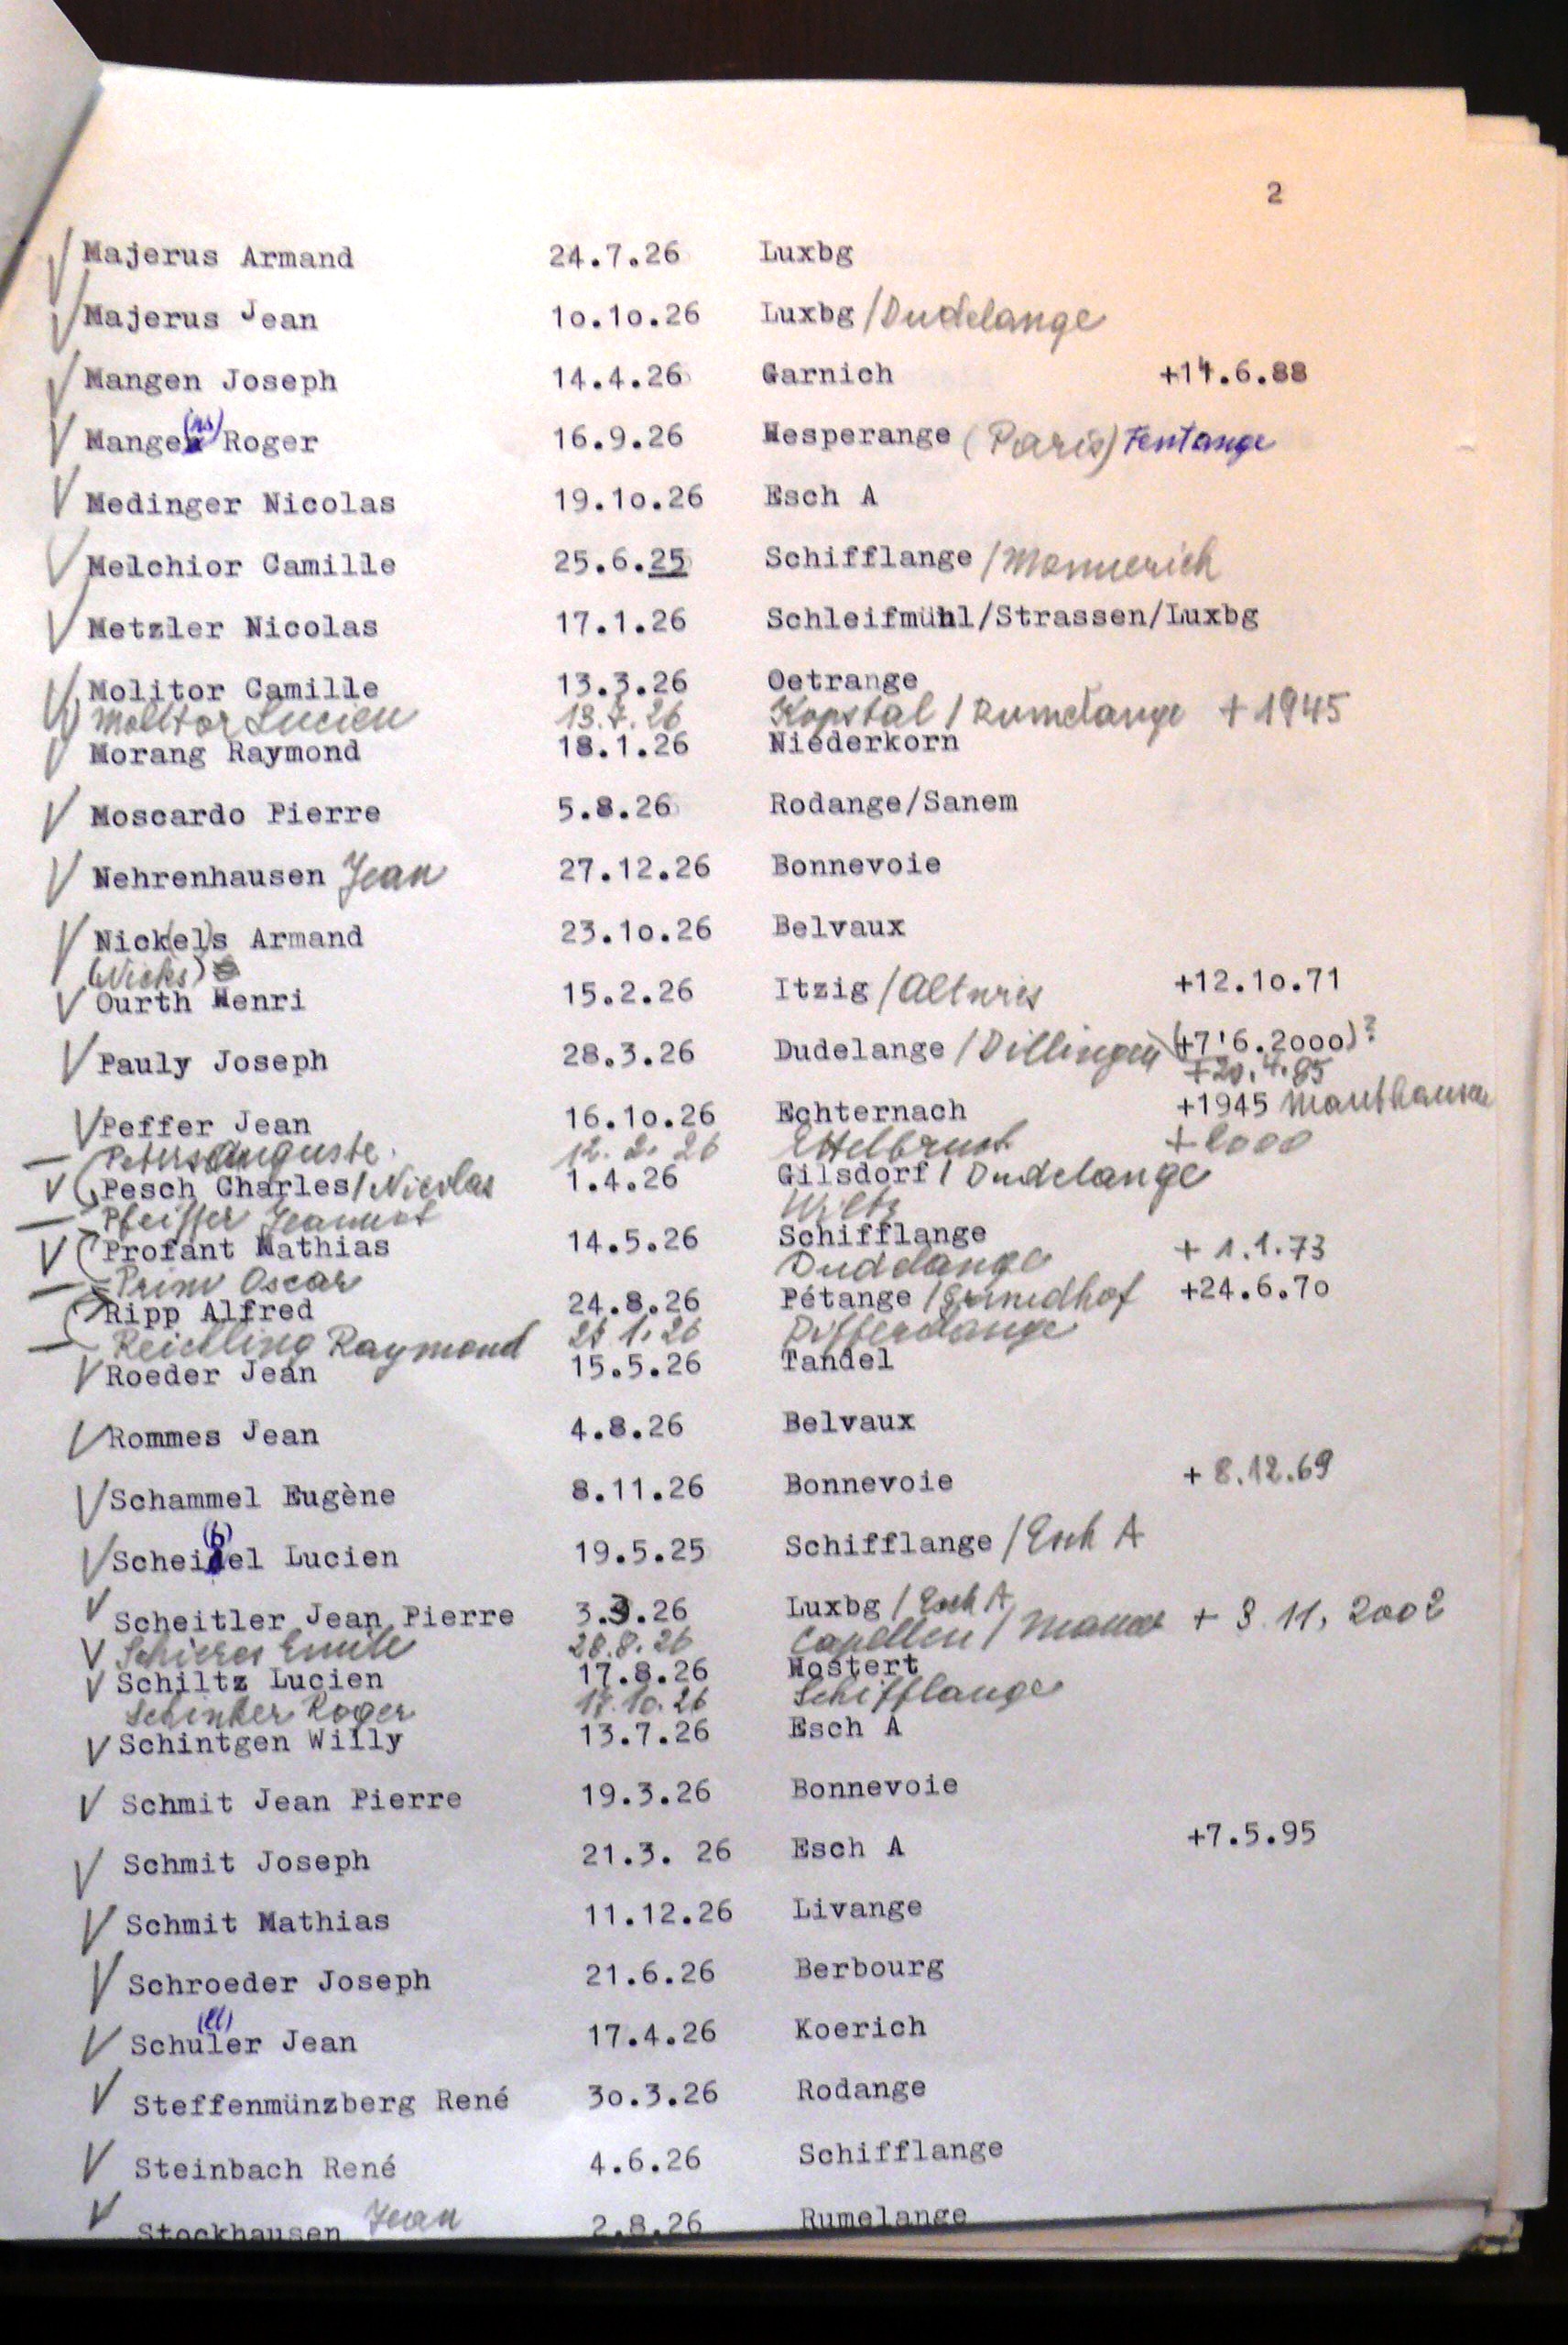 2
Majerus Armand 24.7.26 Luxbg
Majerus Jean 1o.1o.26 Luxbg /Dudelange
Mangen Joseph 14.4.26 Garnich +14.6.88
(ns)
Mangen Roger 16.9.26 Hesperange (Paris) Fentange
Medinger Nicolas 19.1o.26 Esch A
Melchior Camille 25.6.25 Schifflange /Monnerich
Metzler Nicolas 17.1.26 Schleifmühl/Strassen/Luxbg
Molitor Camille 13.3.26 Oetrange
Molitor Lucien 13.7.26 Kopstal / Rumelange + 1945
Morang Raymond 18.1.26 Niederkorn
Moscardo Pierre 5.8.26 Rodange/Sanem
Nehrenhausen Jean 27.12.26 Bonnevoie
Nick(el)s Armand 23.1o.26 Belvaux
(Nicks)
Ourth Henri 15.2.26 Itzig / +12.1o.71
Pauly Joseph 28.3.26 Dudelange / Dillingen (+7'6.2ooo)?
+20.4.85
Peffer Jean 16.1o.26 Echternach +1945 Mauthausen
Peters Auguste 12.2.26 Ettelbruck +2000
Pesch Charles/Nicolas 1.4.26 Gilsdorf / Dudelange
Pfeiffer Jeannot Wiltz
Profant Mathias 14.5.26 Schifflange + 1.1.73
Prim Oscar Dudelange
Ripp Alfred 24.8.26 Pétange /Grundhof +24.6.7o
Reichling Raymond 1.26 Differdange
Roeder Jean 15.5.26 Tandel
Rommes Jean 4.8.26 Belvaux
Schammel Eugène 8.11.26 Bonnevoie + 8.12.69
(b)
Scheidel Lucien 19.5.25 Schifflange /Esch A
Scheitler Jean Pierre 3.3.26 Luxbg / Esch A
Schieres Emile 28.8.26 Capellen / Mamer + 3.11.2002
Schiltz Lucien 17.8.26 Hostert
Schinker Roger 17.10.26 Schifflange
Schintgen Willy 13.7.26 Esch A
Schmit Jean Pierre 19.3.26 Bonnevoie
Schmit Joseph 21.3. 26 Esch A +7.5.95
Schmit Mathias 11.12.26 Livange
Schroeder Joseph 21.6.26 Berbourg
(ll)
Schuler Jean 17.4.26 Koerich
Steffenmünzberg René 3o.3.26 Rodange
Steinbach René 4.6.26 Schifflange
Stockhausen Jean 2.8.26 Rumelange